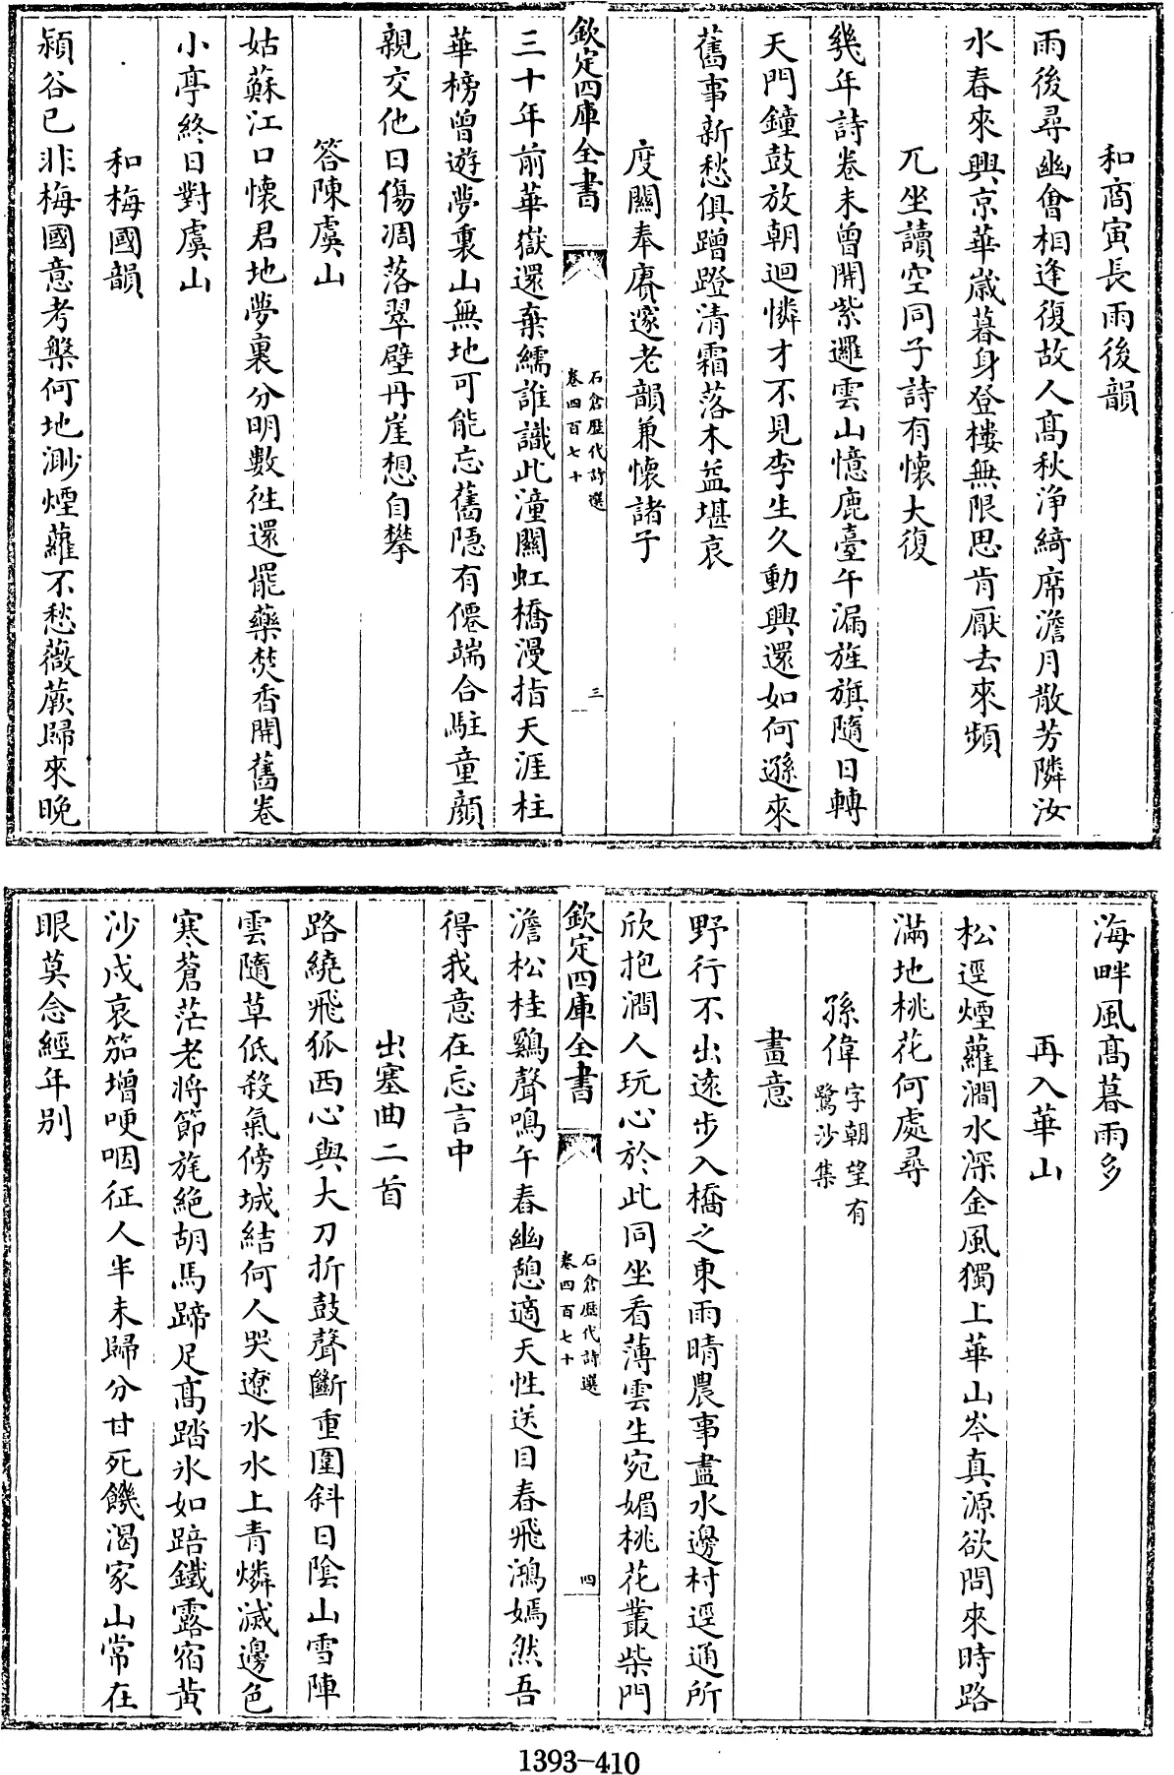 和商寅長雨後韻
雨後尋幽會相逢復故人高秋淨綺席澹月散芳隣汝
水春來興京華歲暮身登樓無限思肯厭去來頻
兀坐讀空同子詩有懐大復
幾年詩卷未曽開紫邏雲山憶鹿臺午漏旌旗隨日轉
天門鐘鼓放朝迴憐才不見李生久動興還如何遜來
舊事新愁俱蹭蹬清霜落木益堪哀
度關奉賡邃老韻兼懐諸子
欽定四庫全書
石倉歴代詩選
卷四百七十
三
三十年前華嶽還棄繻誰識此潼關虹橋漫指天涯柱
華榜曽遊夢裏山無地可能忘舊隠有僊端合駐童顔
親交他日傷凋落翠壁丹崖想自攀
答陳虞山
姑蘇江口懐君地夢裏分明數徃還罷藥焚香開舊卷
小亭終日對虞山
和梅國韻
潁谷已非梅國意考槃何地渺煙蘿不愁薇蕨歸來晚
海畔風髙暮雨多
再入華山
松逕煙蘿澗水深金風獨上華山岑真源欲問來時路
滿地桃花何處尋
孫偉字朝望有
鷺沙集
畫意
野行不出遠步入橋之東雨晴農事盡水邊村逕通所
欣抱澗人玩心於此同坐看薄雲生宛媚桃花叢柴門
欽定四庫全書
石倉歴代詩選
卷四百七十
四
澹松桂鷄聲鳴午春幽憩適天性送目春飛鴻嫣然吾
得我意在忘言中
出塞曲二首
路繞飛狐西心與大刀折鼓聲斷重圍斜日隂山雪陣
雲隨草低殺氣傍城結何人哭遼水水上青燐滅邊色
寒蒼茫老將節旄絶胡馬蹄足髙踏氷如踣鐵露宿黄
沙戍哀笳増哽咽征人半未歸分甘死饑渴家山常在
眼莫念經年别
1393-410